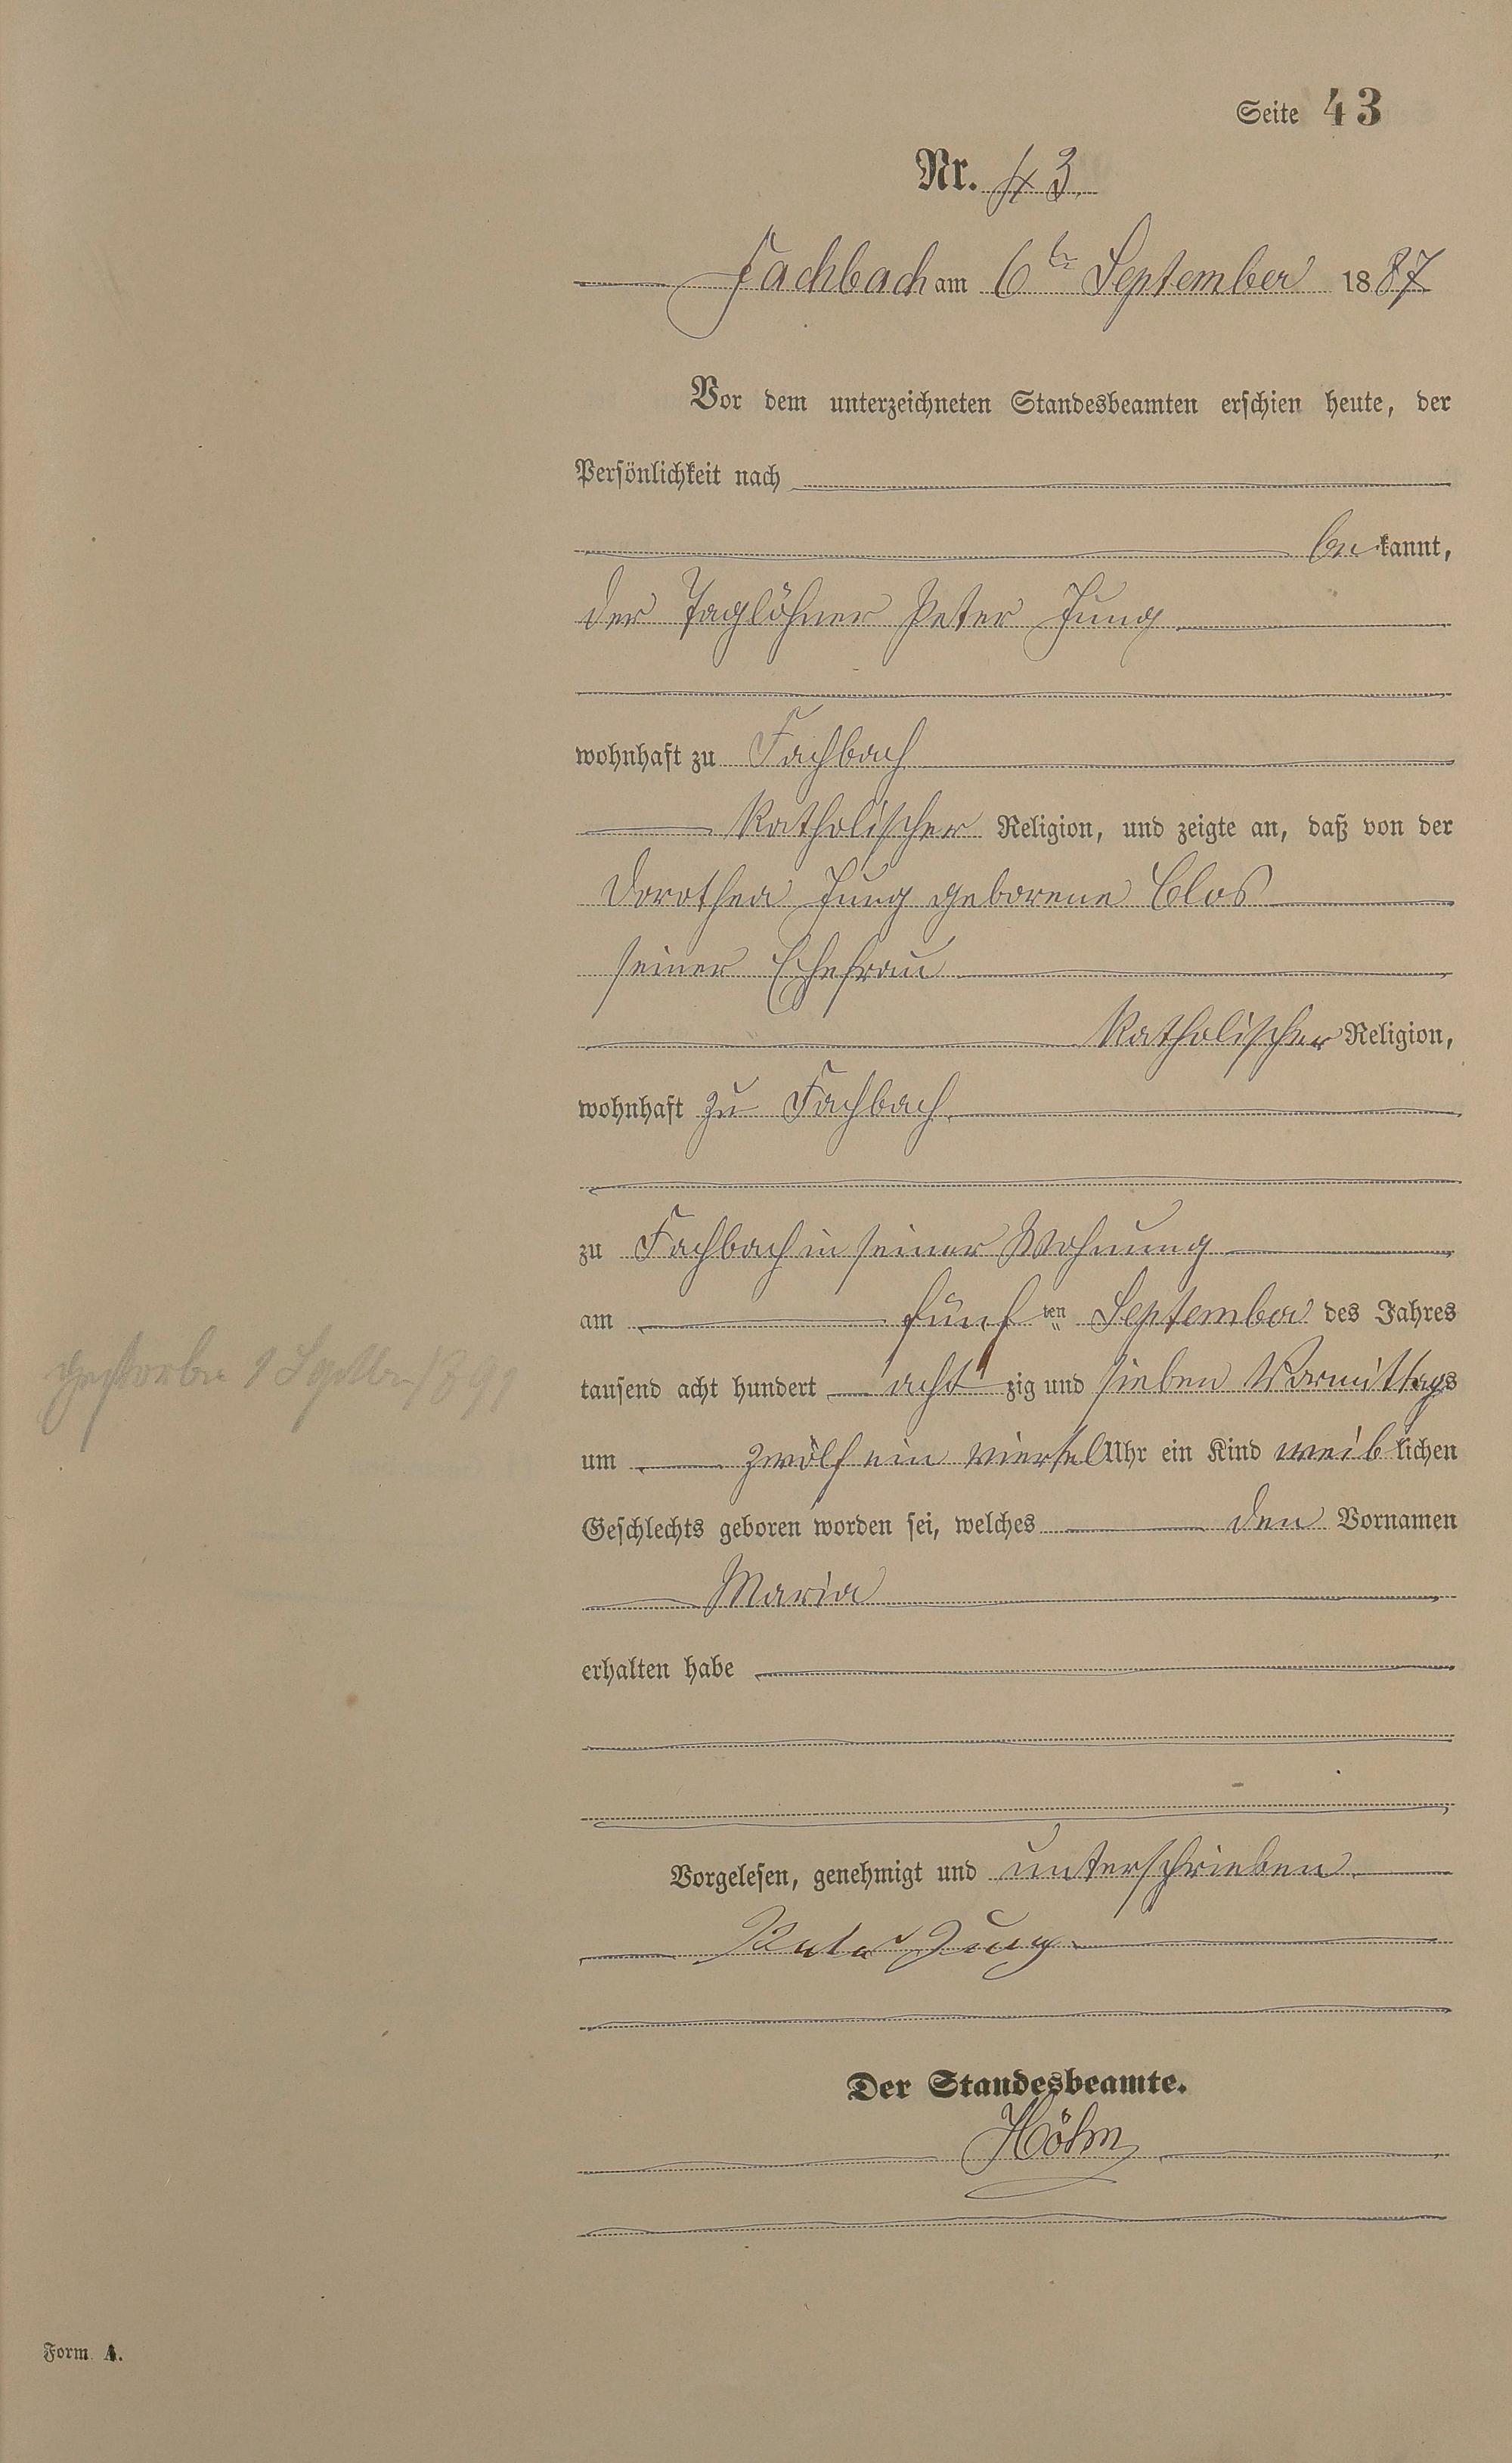 Seite 43
Nr. 43.
Fachbach am 6ten September 1887
Vor dem unterzeichneten Standesbeamten erschien heute, der
Persönlichkeit nach
be kannt,
der Taglöhner Peter Jung
wohnhaft zu Fachbach
katholischer Religion, und zeigte an, daß von der
Dorothea Jung geborene Clos
seiner Ehefrau
katholischer Religion,
wohnhaft zu Fachbach
zu Fachbach in seiner Wohnung
am fünf ten September des Jahres
tausend acht hundert acht zig und sieben Vormittags
gestorben 1
um zwölf ein viertel Uhr ein Kind weib lichen
Geschlechts geboren worden sei, welches den Vornamen
Maria
erhalten habe
Vorgelesen, genehmigt und unterschrieben
Peter Jung
Der Standesbeamte.
Höhn
Form A.